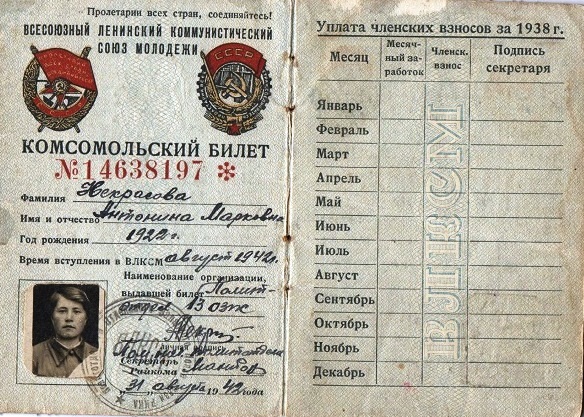 Пролетарии всех стран, соединяйтесь!
ВСЕСОЮЗНЫЙ ЛЕНИНСКИЙ КОММУНИСТИЧЕСКИЙ
СОЮЗ МОЛОДЕЖИ
СССР
КОМСОМОЛЬСКИЙ БИЛЕТ
№14638197 *
Фамилия Некрасова
Имя и отчество Антонина Марковна
Год рождения 1922 г.
Время вступления в ВЛКСМ август 1942 г.
Наименование организации,
выдавшей билет Полит-
отдел 13 озж
Некр
личная подпись
Секретарь
Райкома
31 августа 1942 года
Уплата членских взносов за 1938 г.
Месяц Месяч- Членск. Подпись
ный за- взнос секретаря
работок
Январь
Февраль
Март
Апрель
Май
Июнь
Июль
Август
Сентябрь
Октябрь
Ноябрь
Декабрь
ВЛКСМ